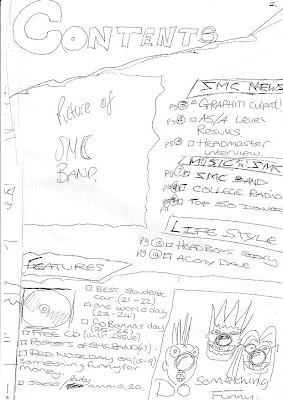 2.
CONTENTS
Picture of
SMC
BAND.
SMC NEWS
pg 3 GRAPHITI culprit!
pg 4 AS/A Level
Results
pg 5 Headmaster
interview.
MUSIC 'n' SMC
pg 7 SMC BAND
COLLEGE RADIO
TOP 50 DOWNLOADS
LIFE STYLE
pg HEADBOYS STORY
pg A
FEATURES
BEST STUDENT
car. (21-22)
one world day
(22-24)
Go Bannas day
(25-26)
FREE CD (with issue)
Posters of SMC BAND (67)
RED NOSE DAY 09 (15-19)
something funny for
money!
Jokes/Party ammo, 20.
DO Something
Funny.